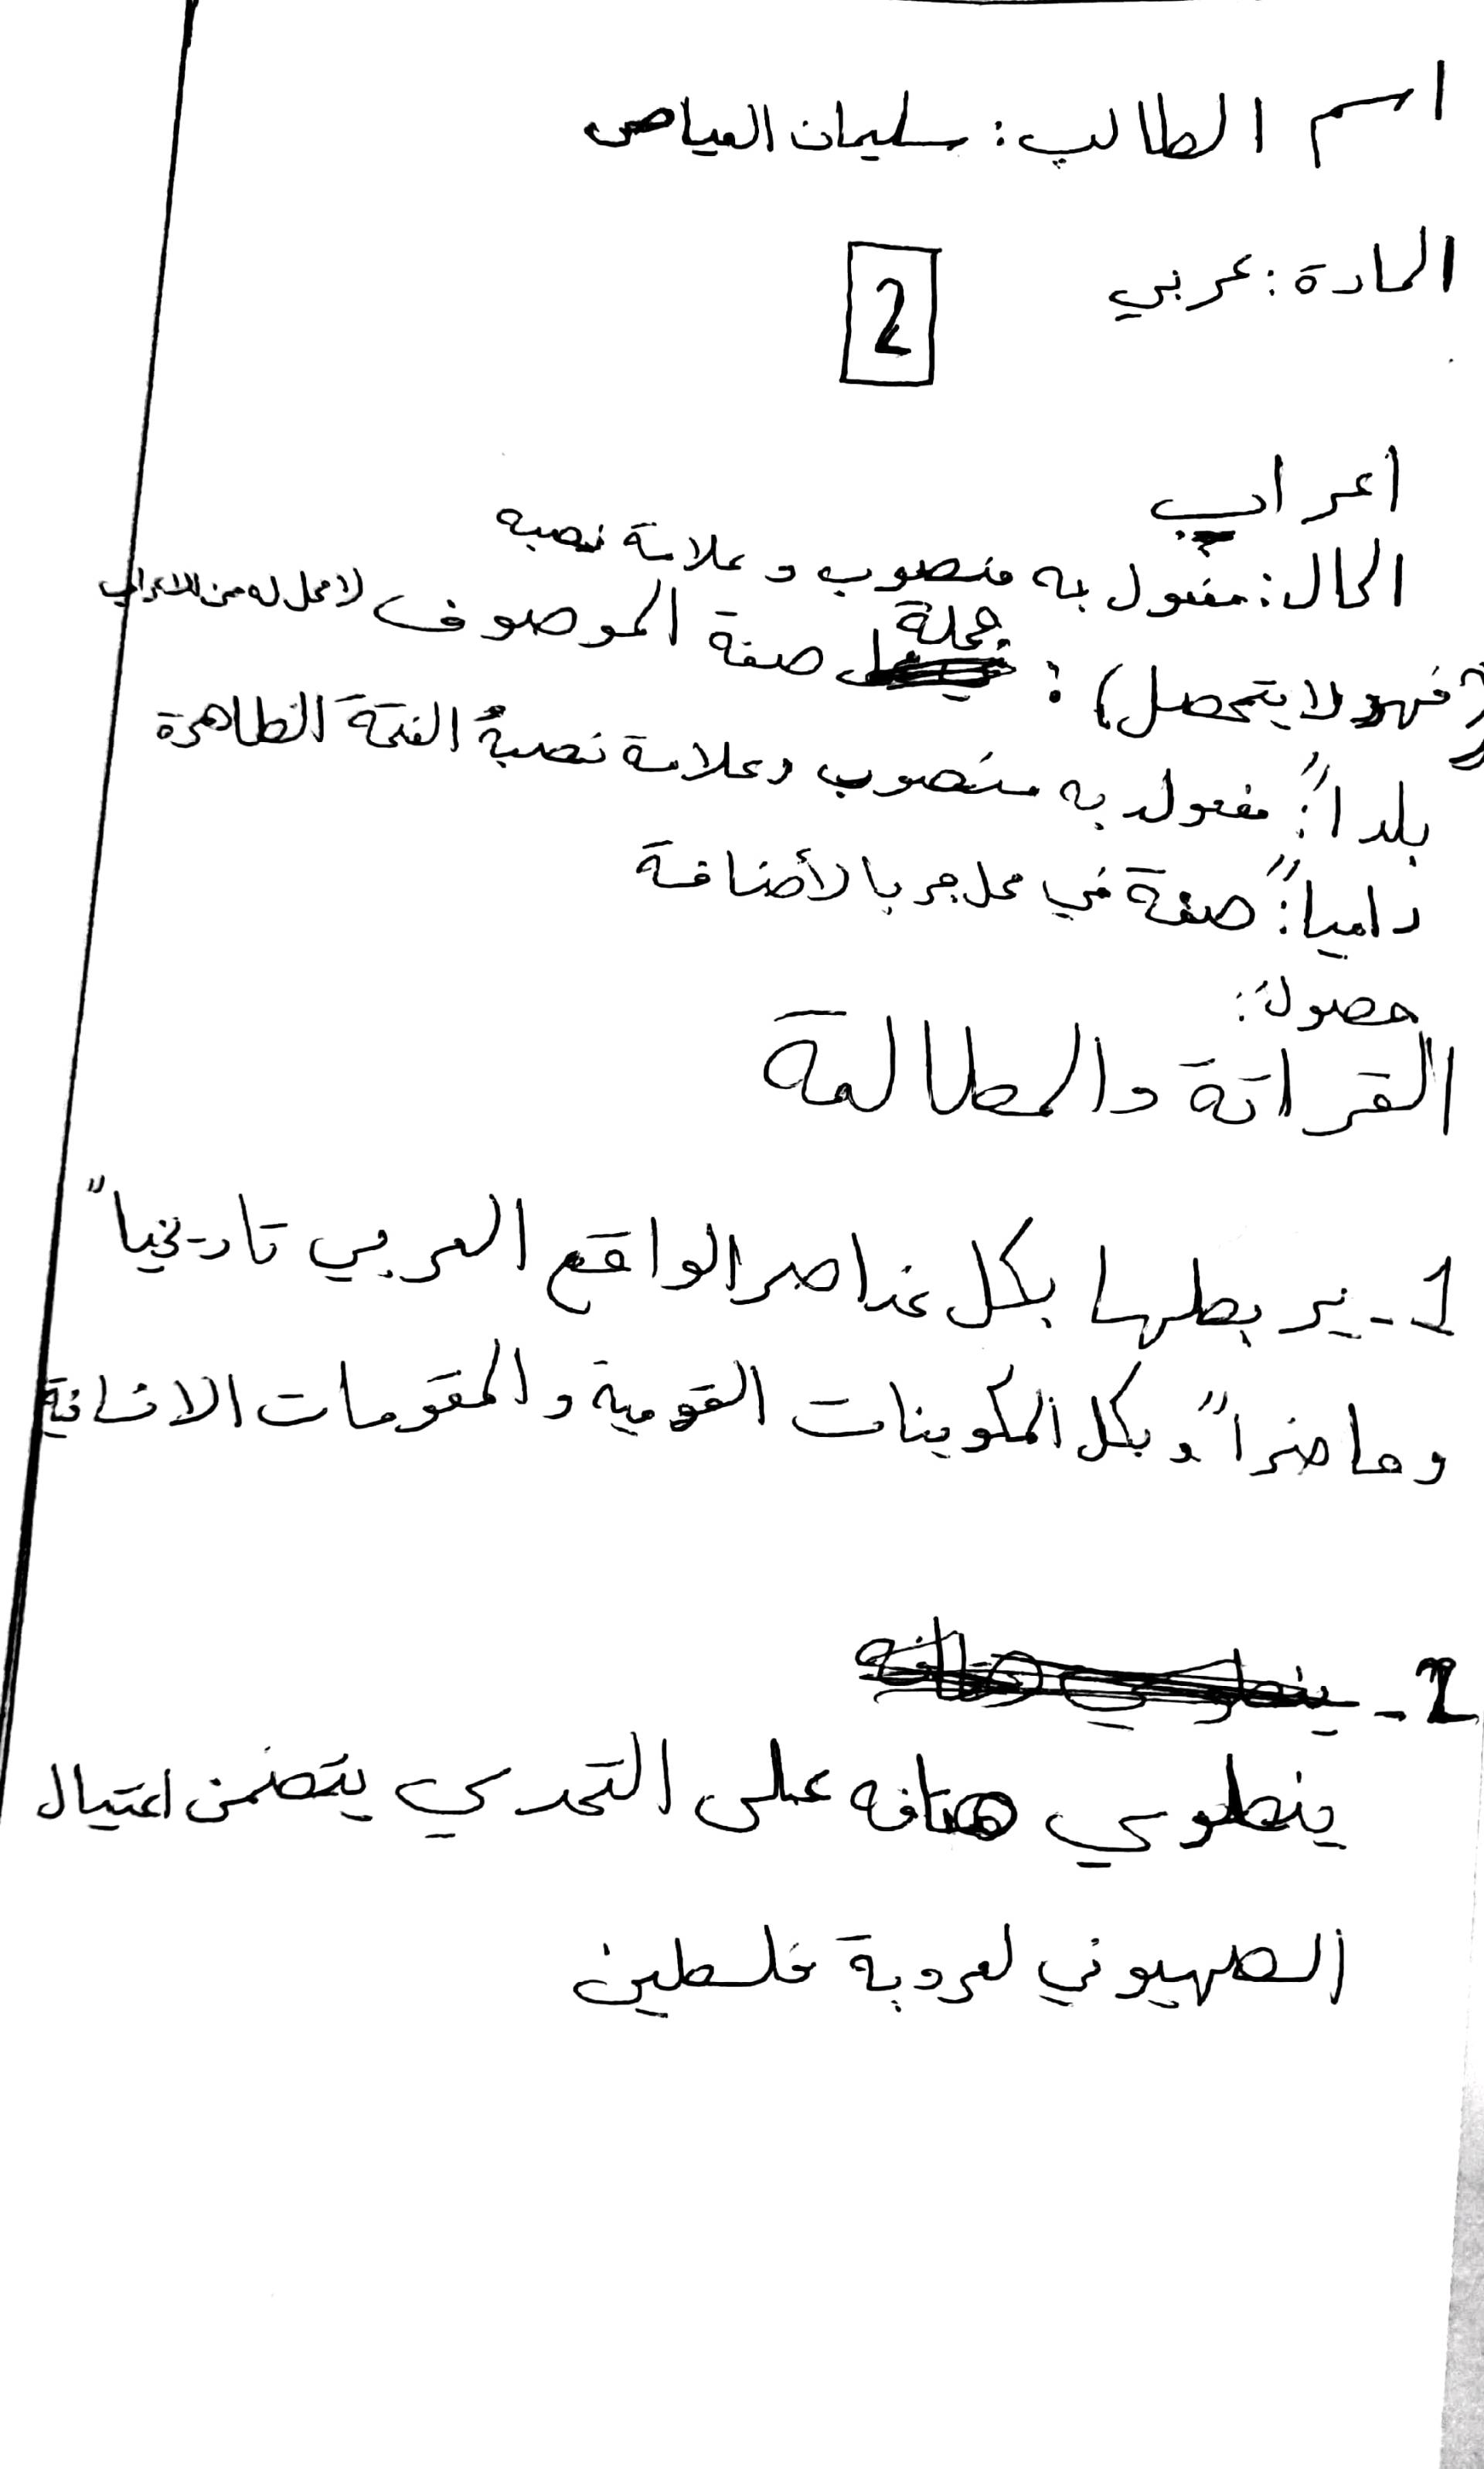 اسم الطالب: سليمان العياص
المادة: عربي
2
اعراب
المال: مفعول به منصوب وعلامة نصبه
(فهو لا يتحصل): جملة صفة الموصوف لا محل له من الاعراب
بلداً: مفعول به منصوب وعلامة نصبة الفتحة الظاهرة
دامياً: صفة في محل جر بالأضافة
حصول:
القرائة والمطالعة
1- يربطها بكل عناصر الواقع العربي تاريخياً
وحاضراً وبكل المكوينات القومية والمقومات الانسانية
2-
ينطوي هتافه على التحدي يتضمن اغتيال
الصهيوني لعروبة فلسطين